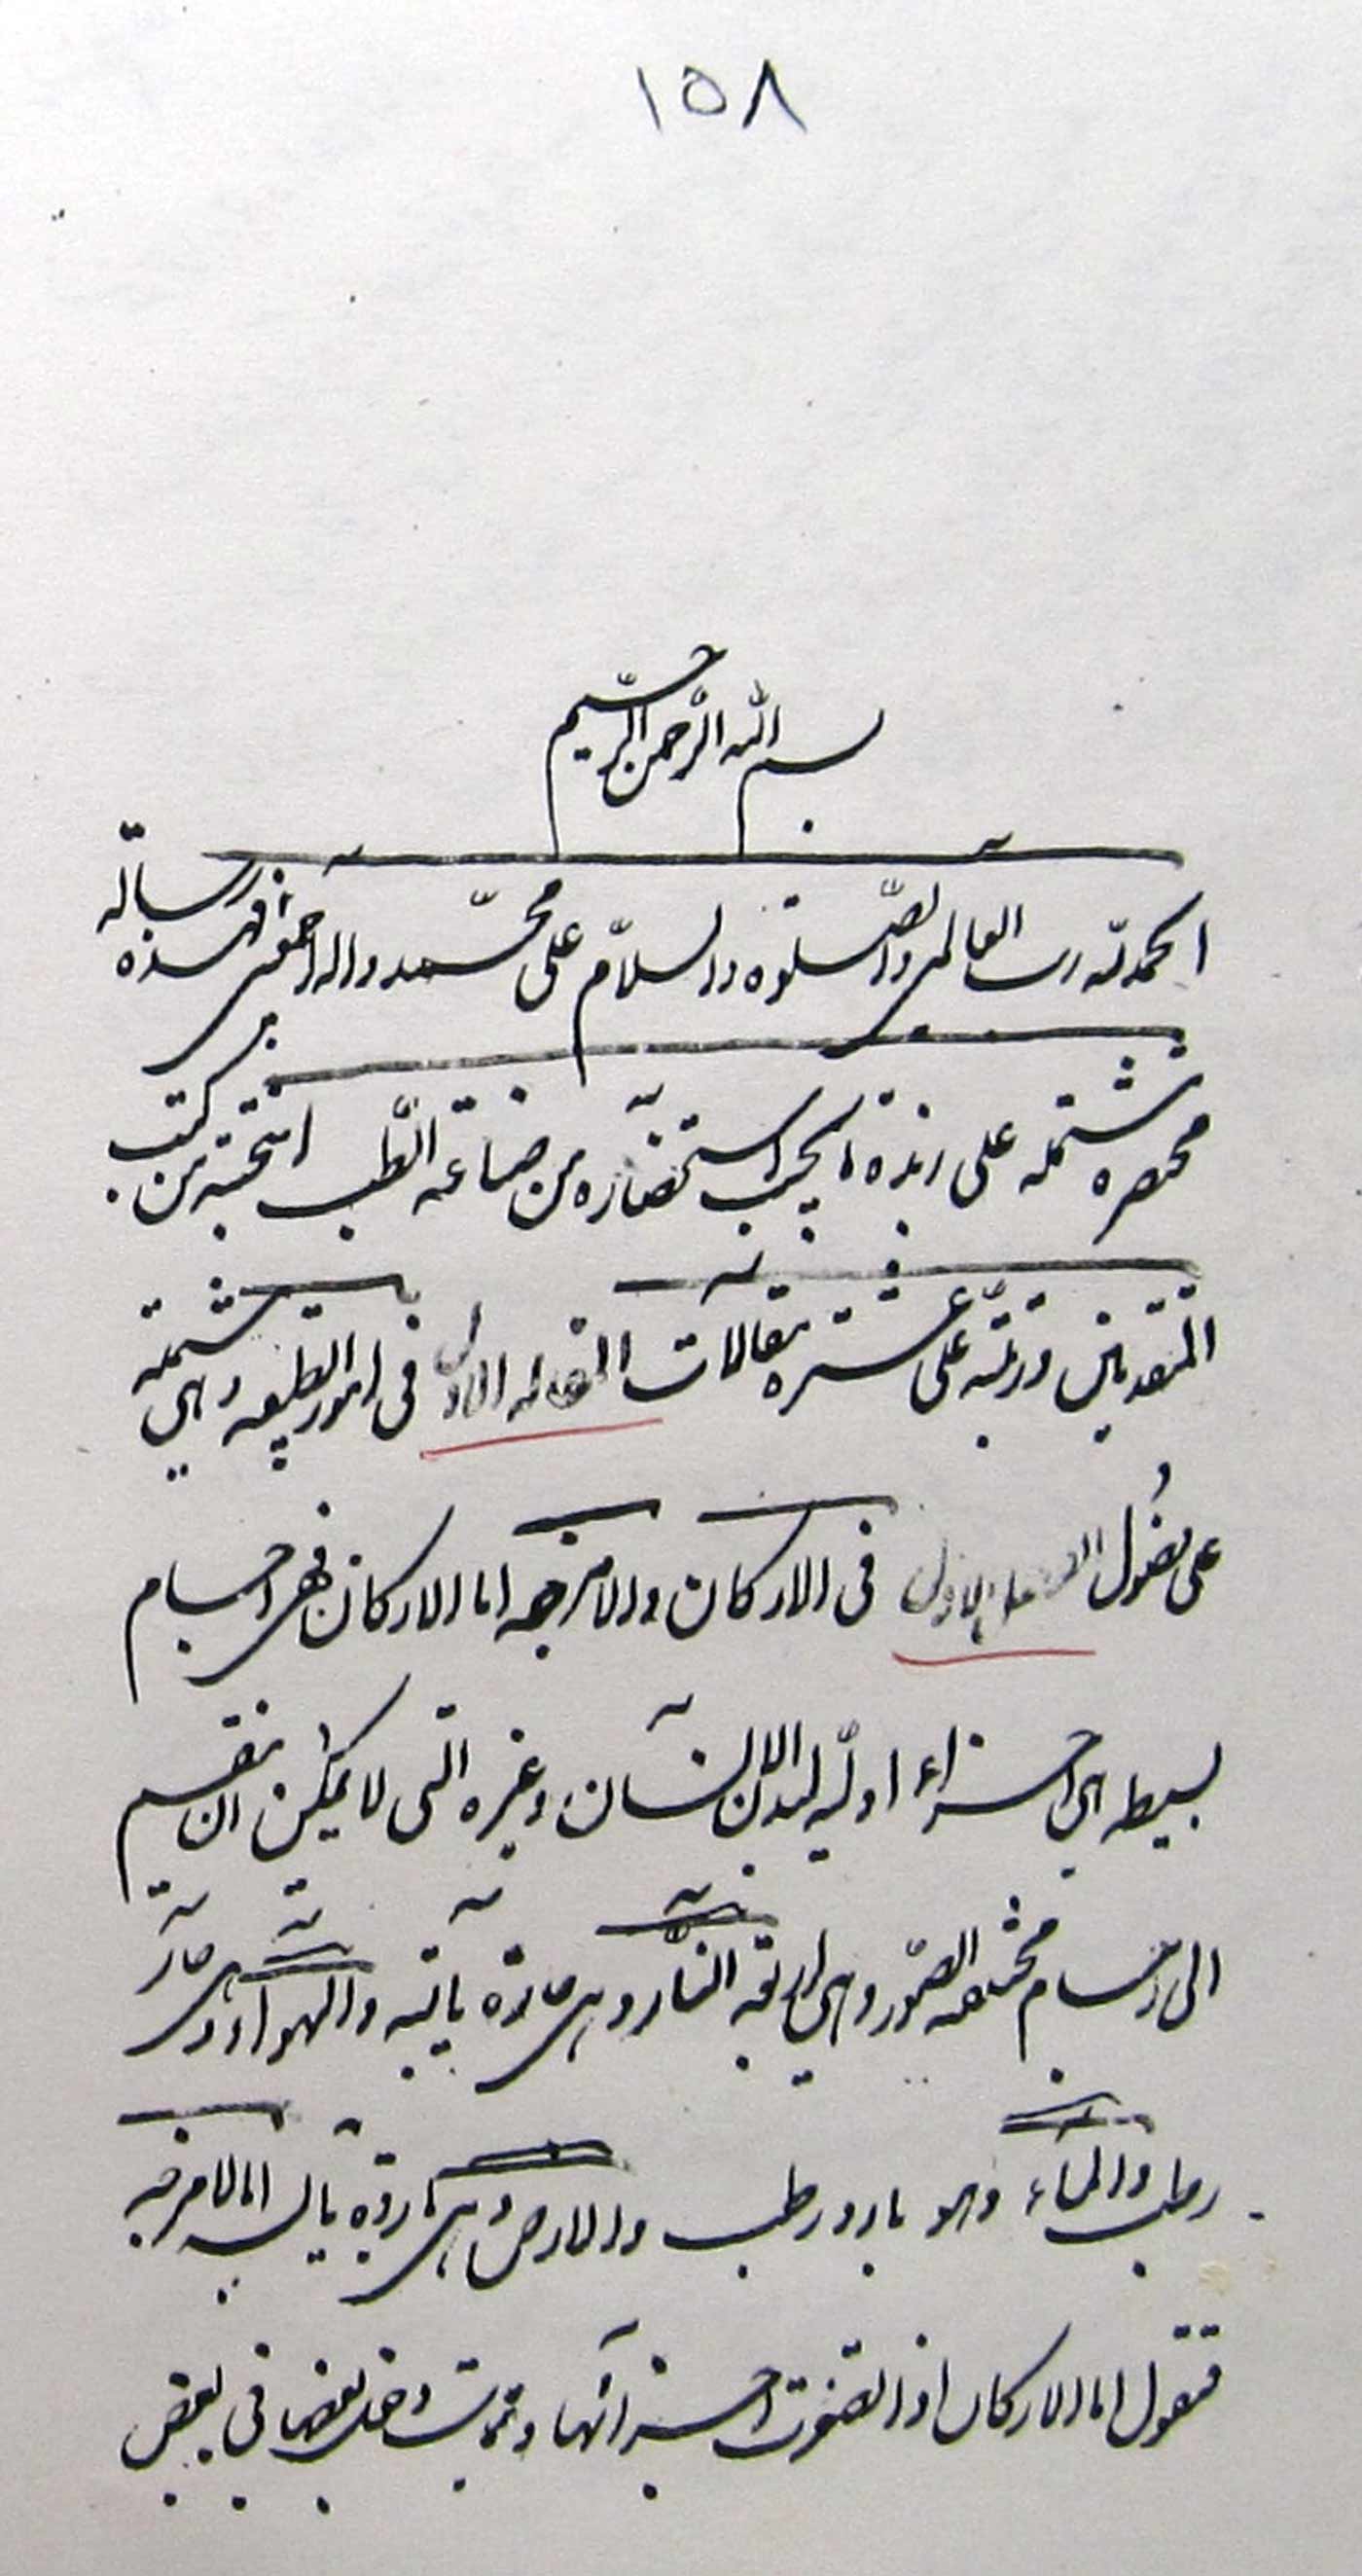 ١٥٨
بسم الله الرحمن الرحيم
الحمد لله رب العالمين والصلوة والسلام على محمد واله اجمعين فهذه رسالة
مختصره تشتمله على زبدة ما يجب استحضاره من صناعة الطب انتخبته من كتب
المتقدمين ورتبته على عشرة مقالات المقاله الاولى فى امور الطبيعه وهى مشتمله
على فصول الفصل الاول فى الاركان والامزجه اما الاركان فهى اجسام
بسيطه هى اجزاء اوليّه لبدن الانسان وغيره التى لا يمكن ان ينقسم
الى اجسام مختلفه الصّور وهى اربعه النّار وهى حارة يابسه والهواء وهى حار
رطب والماء وهو بارد رطب والارض وهى باردة يابسه اما الامزجه
فنقول اما الاركان اذا تصغرت اجزائها وتماست بعضها فى بعض